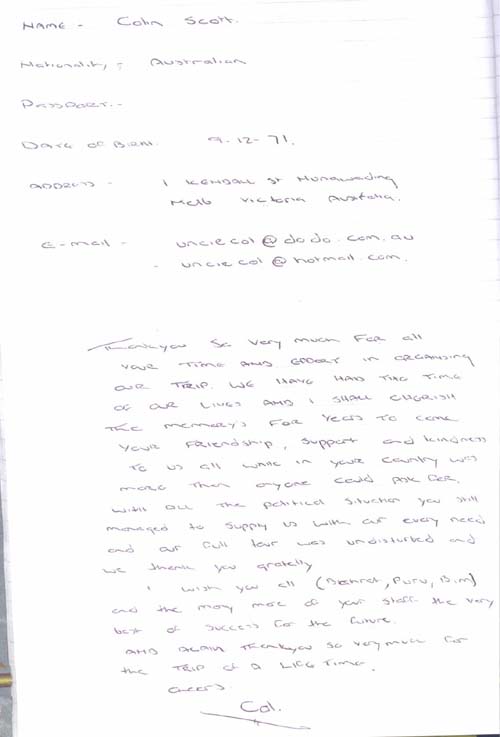 NAME - Colin Scott.
Nationality - Australian
PASSPORT. -
DATE OF BIRTH. 9-12-71.
ADDRESS - 1 KENDALL St Nunawading
Melb Victoria Australia.
E-mail - unclecol@dodo.com.au
- unclecol@hotmail.com.
Thankyou so very much FOR all
YOUR TIME AND EFFORT in ORGANISING
OUR TRIP. WE HAVE HAD THE TIME
OF OUR LIVES AND I SHALL CHERISH
THE MEMORYS FOR YEARS TO COME
YOUR FRIENDSHIP, Support and kindness
TO US all WHILE in YOUR COUNTRY WAS
MORE THEN anyone could ASK FOR.
WITH ALL THE political situation you still
managed to supply us with our every need
and our full tour was undisturbed and
we thank you greatly
I wish you all (, Puru, Bim)
and the many more of your staff the very
best of success for the future.
AND AGAIN THANKyou so very much for
the TRIP of a LIFE TIME.
cheers
Col.